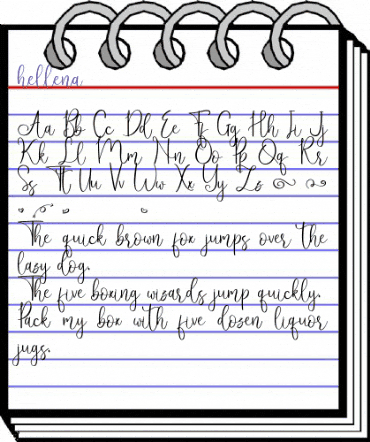 hellena
Aa Bb Cc Dd Ee Ff Gg Hh Ii J
Kk Ll Mm Nn Oo Pp Qq Rr
Ss Tt Uu Vv Ww Xx Yy Zz
The quick brown fox jumps over the
lazy dog.
The five boxing wizards jump quickly.
Pack my box with five dozen liquor
jugs.